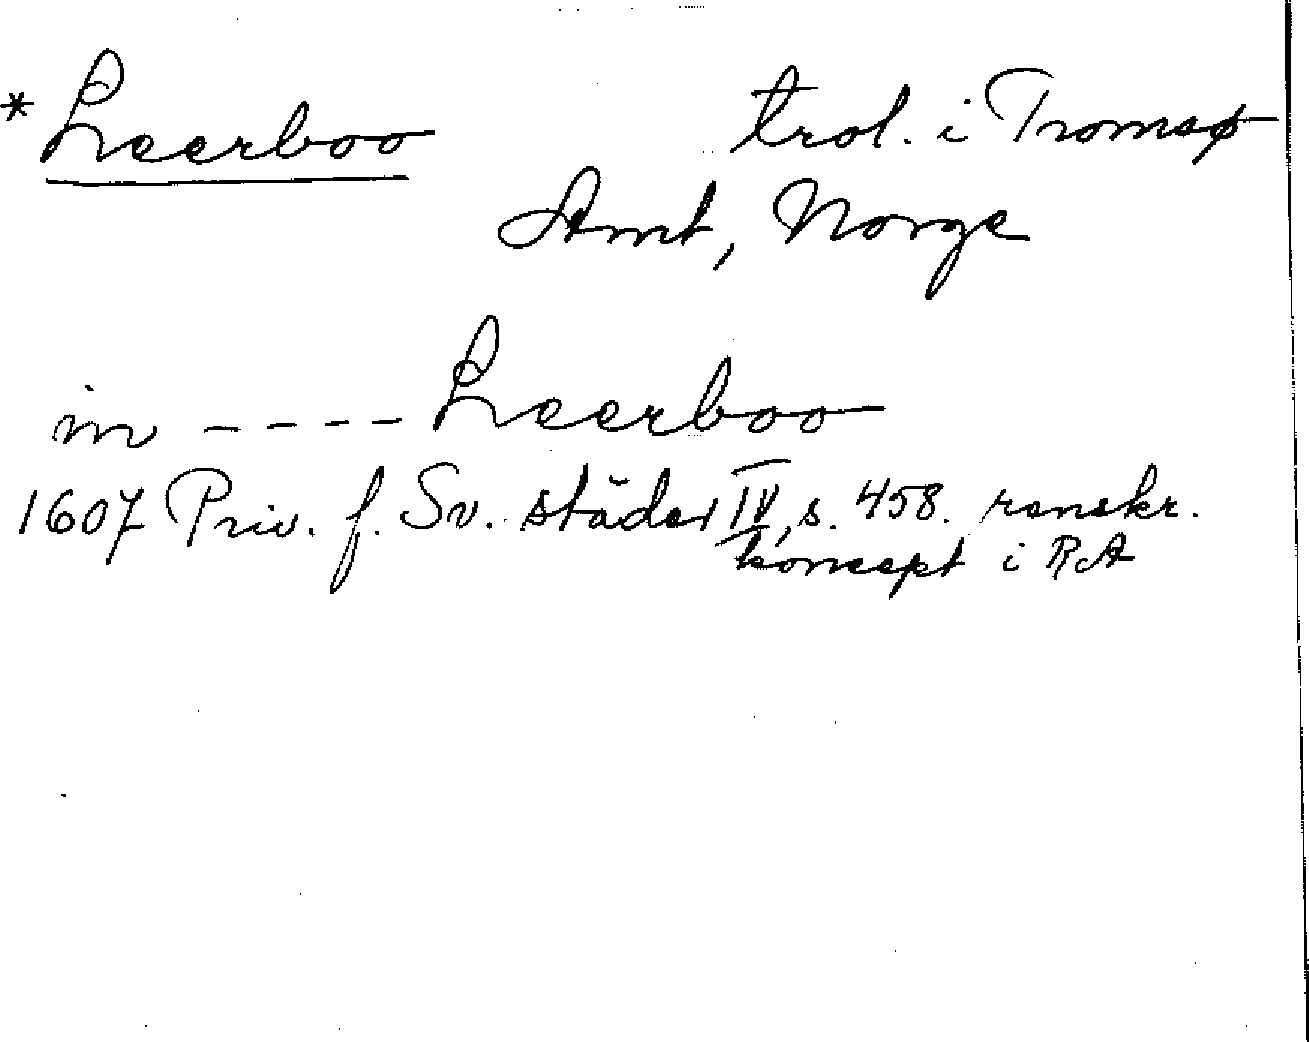 * Leerboo trol. i Tromsø
Amt, Norge
in ---- Leerboo
1607 Priv. f. Sv. städer IV, s. 458. renskr.
koncept i RA